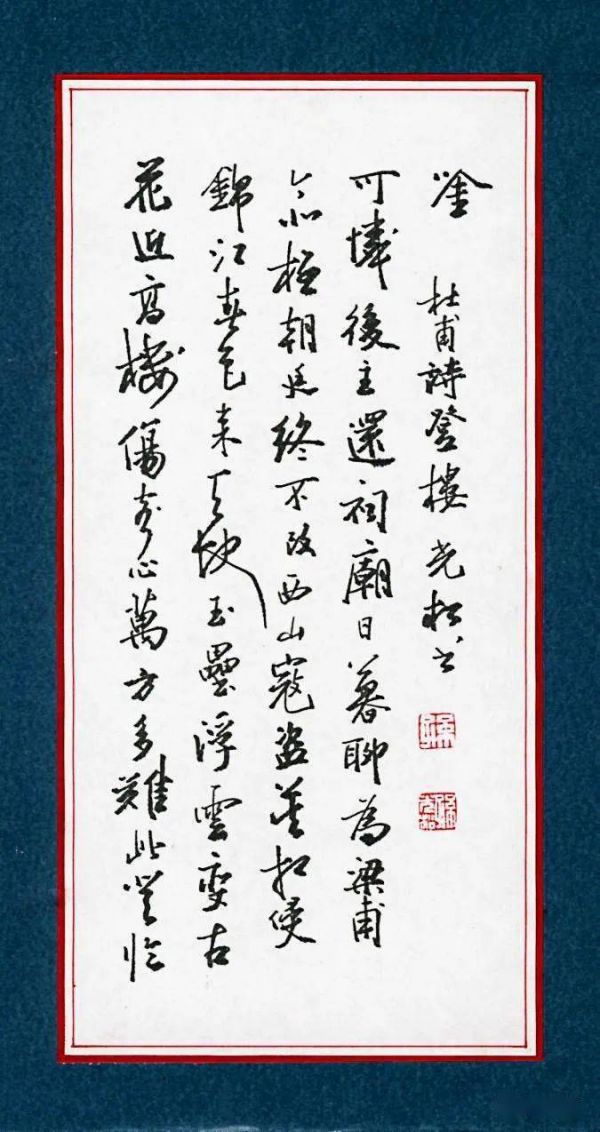 花近高樓傷客心萬方多難此登臨
錦江春色来天地玉壘浮雲變古
今北極朝廷終不改西山寇盗莫相侵
可憐後主還祠廟日暮聊為梁甫
吟 杜甫詩登樓 书